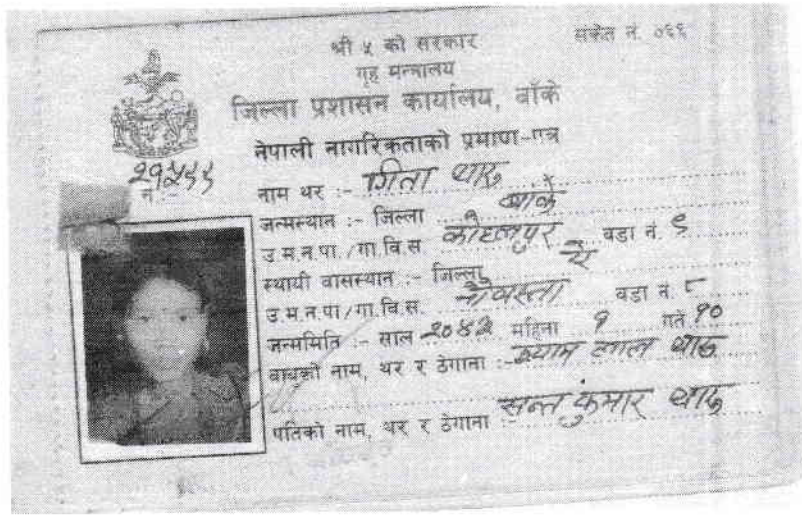 श्री ५ को सरकार
संकेत नं. ०६६
गृह मन्त्रालय
जिल्ला प्रशासन कार्यालय, बाँके
नेपाली नागरिकताको प्रमाण-पत्र
नं :-
नाम थर :- गिता थारु
जन्मस्थान :- जिल्ला बाँके
उ.म.न.पा./गा.वि.स कोहलपुर वडा नं. ९
स्थायी वासस्थान :- जिल्ला ऐ
उ.म.न.पा/गा.वि.स. नौवस्ता वडा नं. ८
जन्ममिति :- साल महिना १ गते १०
बाबुको नाम, थर र ठेगाना :- श्याम लाल थारु
पतिको नाम, थर र ठेगाना :- सन्त कुमार थारु